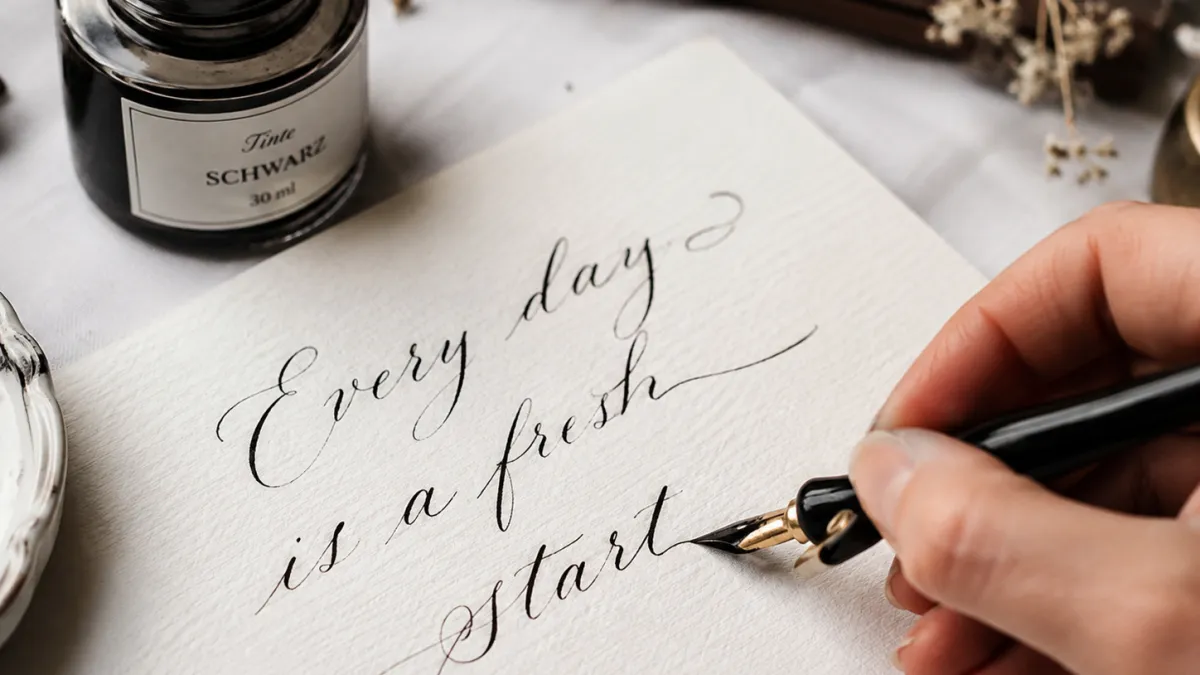 Tinte
SCHWARZ
30 ml
Every day
is a fresh
start